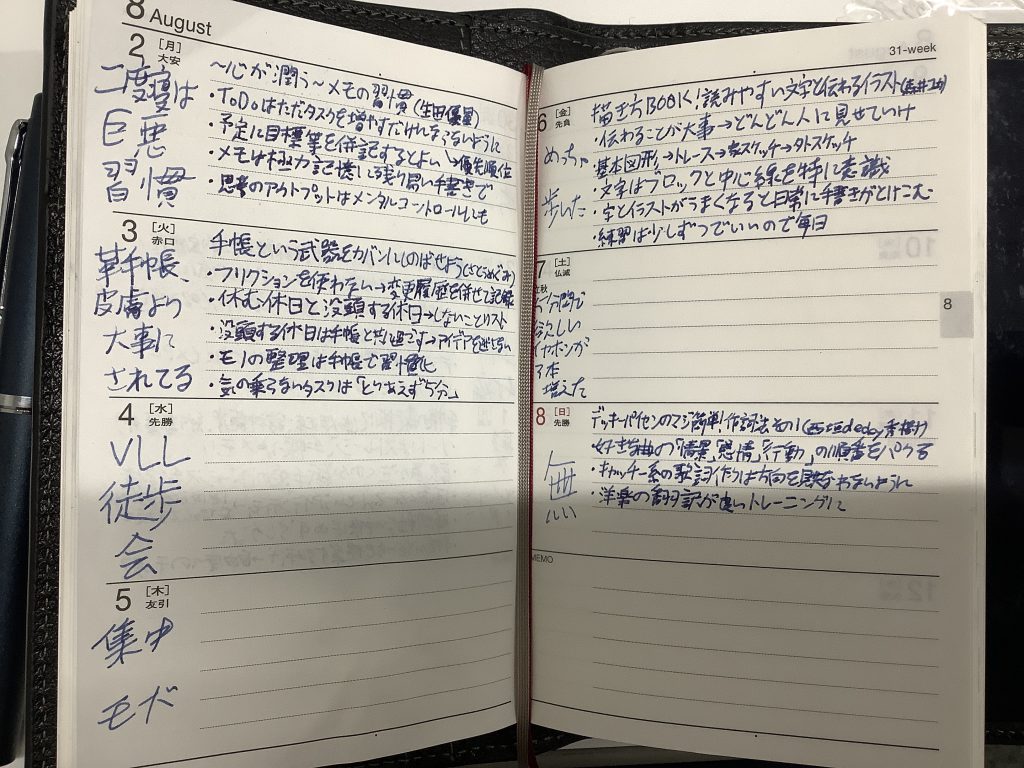 8 August
2 [月] 大安
二度寝は
巨悪
習慣
～心が潤う～メモの習慣(生田優里)
・ToDoはただタスクを増やすだけにならないように
・予定に目標等を併記するとよい→優先順位
・メモは極力記憶に残り易い手書きで
・思考のアウトプットはメンタルコントロールにも
3 [火] 赤口
革手帳、
皮膚より
大事に
されてる
手帳という武器をカバンにしのばせよう(さとうめぐみ)
・フリクションを使わない→変更履歴を併せて記録
・休む休日と没頭する休日→しないことリスト
・没頭する休日は手帳と共に過ごす→アイデアを逃さない
・モノの整理は手帳で習慣化
・気の乗らないタスクは「とりあえず5分」
4 [水] 先勝
VLL
徒歩
会
5 [木] 友引
集中
モード
31-week
6 [金] 先負
めっちゃ
歩いた
描き方BOOK!読みやすい文字と伝わるイラスト
・伝わることが大事→どんどん人に見せていけ
・基本図形→トレース→家スケッチ→外スケッチ
・文字はブロックと中心線を特に意識
・字とイラストがうまくなると日常に手書きがとけこむ
・練習は少しずつでいいので毎日
7 [土] 仏滅
立秋
5分間で
欲しい
イヤホンが
3本
増えた
8
8 [日] 先勝
無
いい
デッキーパイセンのマジ簡単!作詞法その1
・好きな曲の「情景」「感情」「行動」の順番をパクる
・キャッチー系の歌詞作りは方向を間違わないように
・洋楽の翻訳が良いトレーニングに
MEMO